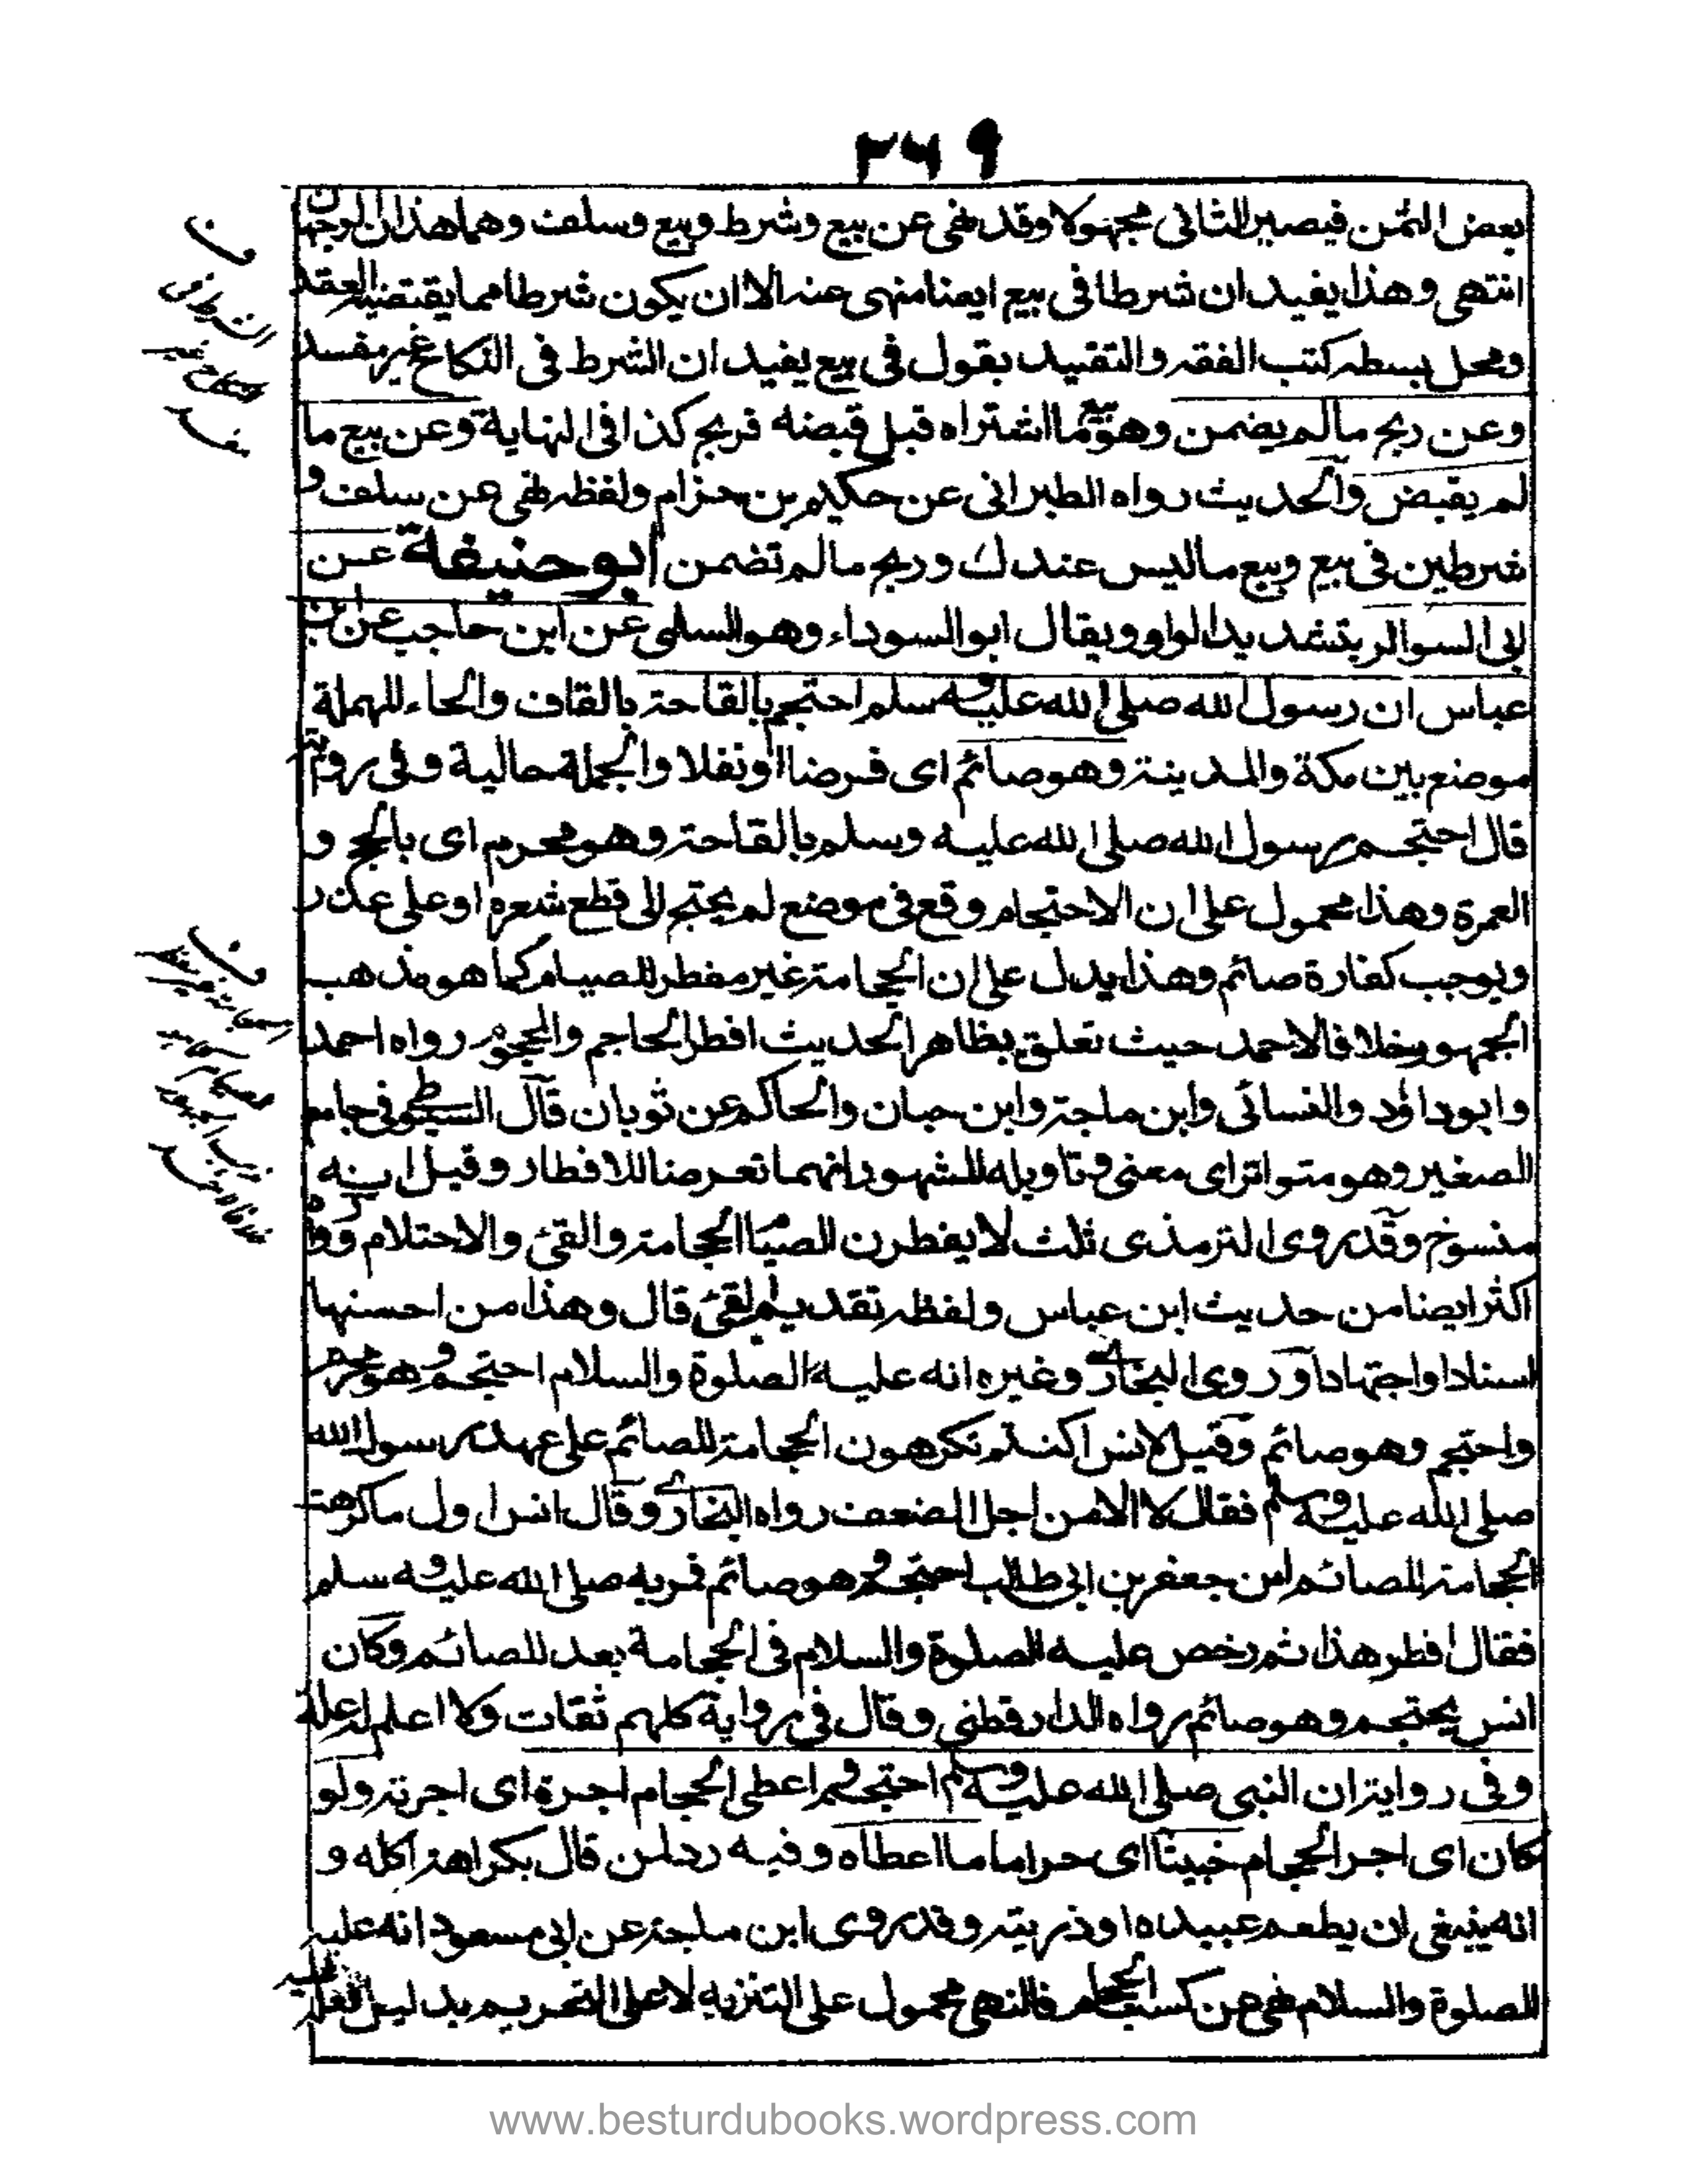 ٢٦٩
بعض الثمن فيصير الثانى مجهولا وقد نهى عن بيع وشرط وبيع وسلف وهما هذان الوجهان
انتهى وهذا يفيد ان شرطا فى بيع ايضا منهى عنه الا ان يكون شرطا مما يقتضيه العقد
ومحل بسطه كتب الفقه والتقييد بقول فى بيع يفيد ان الشرط فى النكاح غير مفسد
وعن ربح مالم يضمن وهو بيع ما اشتراه قبل قبضه فربح كذا فى النهاية وعن بيع ما
لم يقبض والحديث رواه الطبرانى عن حكيم بن حزام ولفظه نهى عن سلف و
شرطين فى بيع وبيع ماليس عندك وربح مالم تضمن ابو حنيفة عن
ابى السوار بتشديد الواو ويقال ابو السوداء وهو السلمى عن ابن حاجب عن ابن
عباس ان رسول الله صلى الله عليه وسلم احتجم بالقاحة بالقاف والحاء المهملة
موضع بين مكة والمدينة وهو صائم اى فرضا او نفلا والجملة حالية وفى رواية
قال احتجم رسول الله صلى الله عليه وسلم بالقاحة وهو محرم اى بالحج و
العمرة وهذا محمول على ان الاحتجام وقع فى موضع لم يحتج الى قطع شعره او على عذر
ويوجب كفارة صائم وهذا يدل على ان الحجامة غير مفطر للصيام كما هو مذهب
الجمهور خلافا لاحمد حيث تعلق بظاهر الحديث افطر الحاجم والمحجوم رواه احمد
وابوداؤد والنسائى وابن ماجة وابن حبان والحاكم عن ثوبان قال السيوطى فى جامع
الصغير وهو متواتر اى معنى وتاويله المشهور انهما تعرضا للافطار وقيل انه
منسوخ وقد روى الترمذى ثلث لا يفطرن الصيام الحجامة والقئ والاحتلام ورواه
اكثر ايضا من حديث ابن عباس ولفظه تقديم القئ قال وهذا من احسنها
اسنادا واجتهادا وروى البخارى وغيره انه عليه الصلوة والسلام احتجم وهو محرم
واحتجم وهو صائم وقيل لانس اكنتم تكرهون الحجامة للصائم على عهد رسول الله
صلى الله عليه وسلم فقال لا الا من اجل الضعف رواه البخارى وقال انس اول ماكرهت
الحجامة للصائم ان جعفر بن ابى طالب احتجم وهو صائم فمر به صلى الله عليه وسلم
فقال افطر هذا ثم رخص عليه الصلوة والسلام فى الحجامة بعد للصائم وكان
انس يحتجم وهو صائم رواه الدارقطنى وقال فى رواية كلهم ثقات ولا اعلم له علة
وفى رواية ان النبى صلى الله عليه وسلم احتجم واعطى الحجام اجرة اى اجرته ولو
كان اى اجر الحجام خبيثا اى حراما ما اعطاه وفيه رد لمن قال بكراهة اكله و
انه ينبغى ان يطعم عبيده او ذريته وقد روى ابن ماجة عن ابى مسعود انه عليه
الصلوة والسلام نهى عن كسب الحجام فالنهى محمول على التنزيه لا على التحريم بدليل فعله عليه
www.besturdubooks.wordpress.com